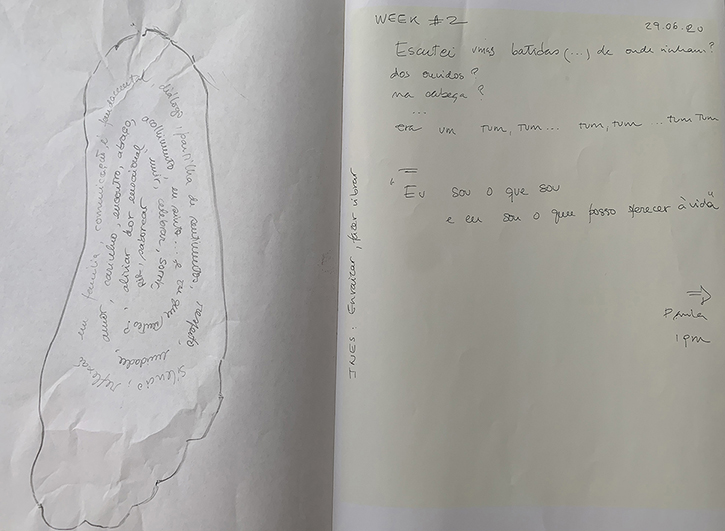 em família, comunicação é fundamental
diálogo, partilha de sentimentos, respeito
silêncio, reflexão
amor, carinho, encontro, abraço,
acolhimento, eu sinto... e tu que sentes
aliviar dor emocional
celebrar,
saborear
WEEK #2
29.06.20
Escutei umas batidas (...) de onde vinham?
dos ouvidos?
na cabeça?
...
era um tum, tum... tum, tum... tum tum
"Eu sou o que sou
e eu sou o que posso oferecer à vida"
INES: Enraizar, fazer vibrar
⇒
Paula
1 pm